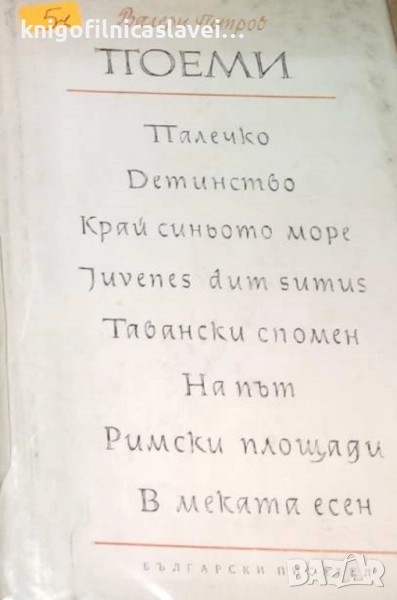 5лв
Валери Петров
knigofilnicaslavei...
ПОЕМИ
Палечко
Детинство
Край синьото море
Juvenes dum sumus
Тавански спомен
На път
Римски площади
В меката есен
БЪЛГАРСКИ ПИСАТЕЛ
BAZAR